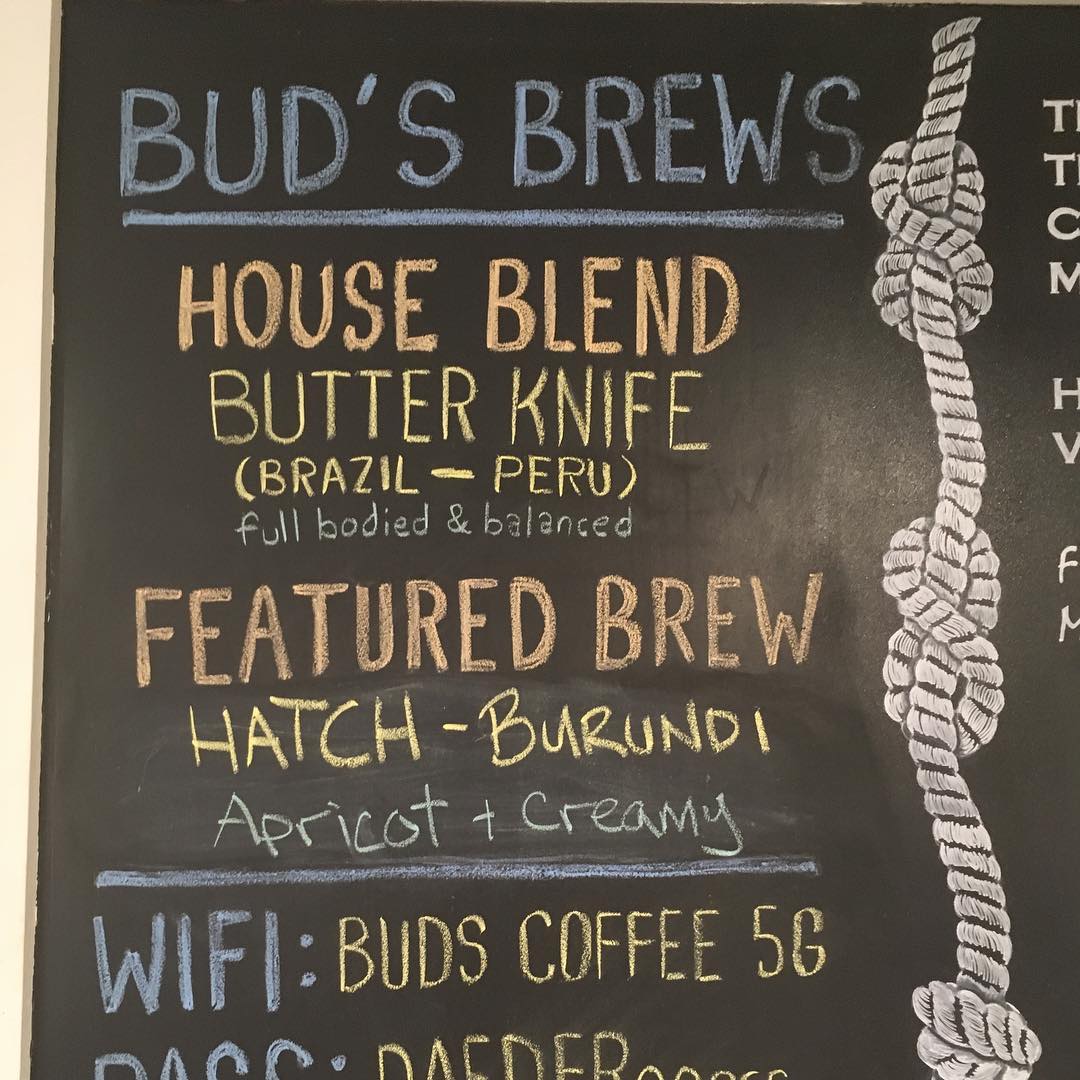 BUD'S BREWS
HOUSE BLEND
BUTTER KNIFE
(BRAZIL - PERU)
full bodied & balanced
FEATURED BREW
HATCH - BURUNDI
Apricot + Creamy
WIFI: BUDS COFFEE 5G
PASS: